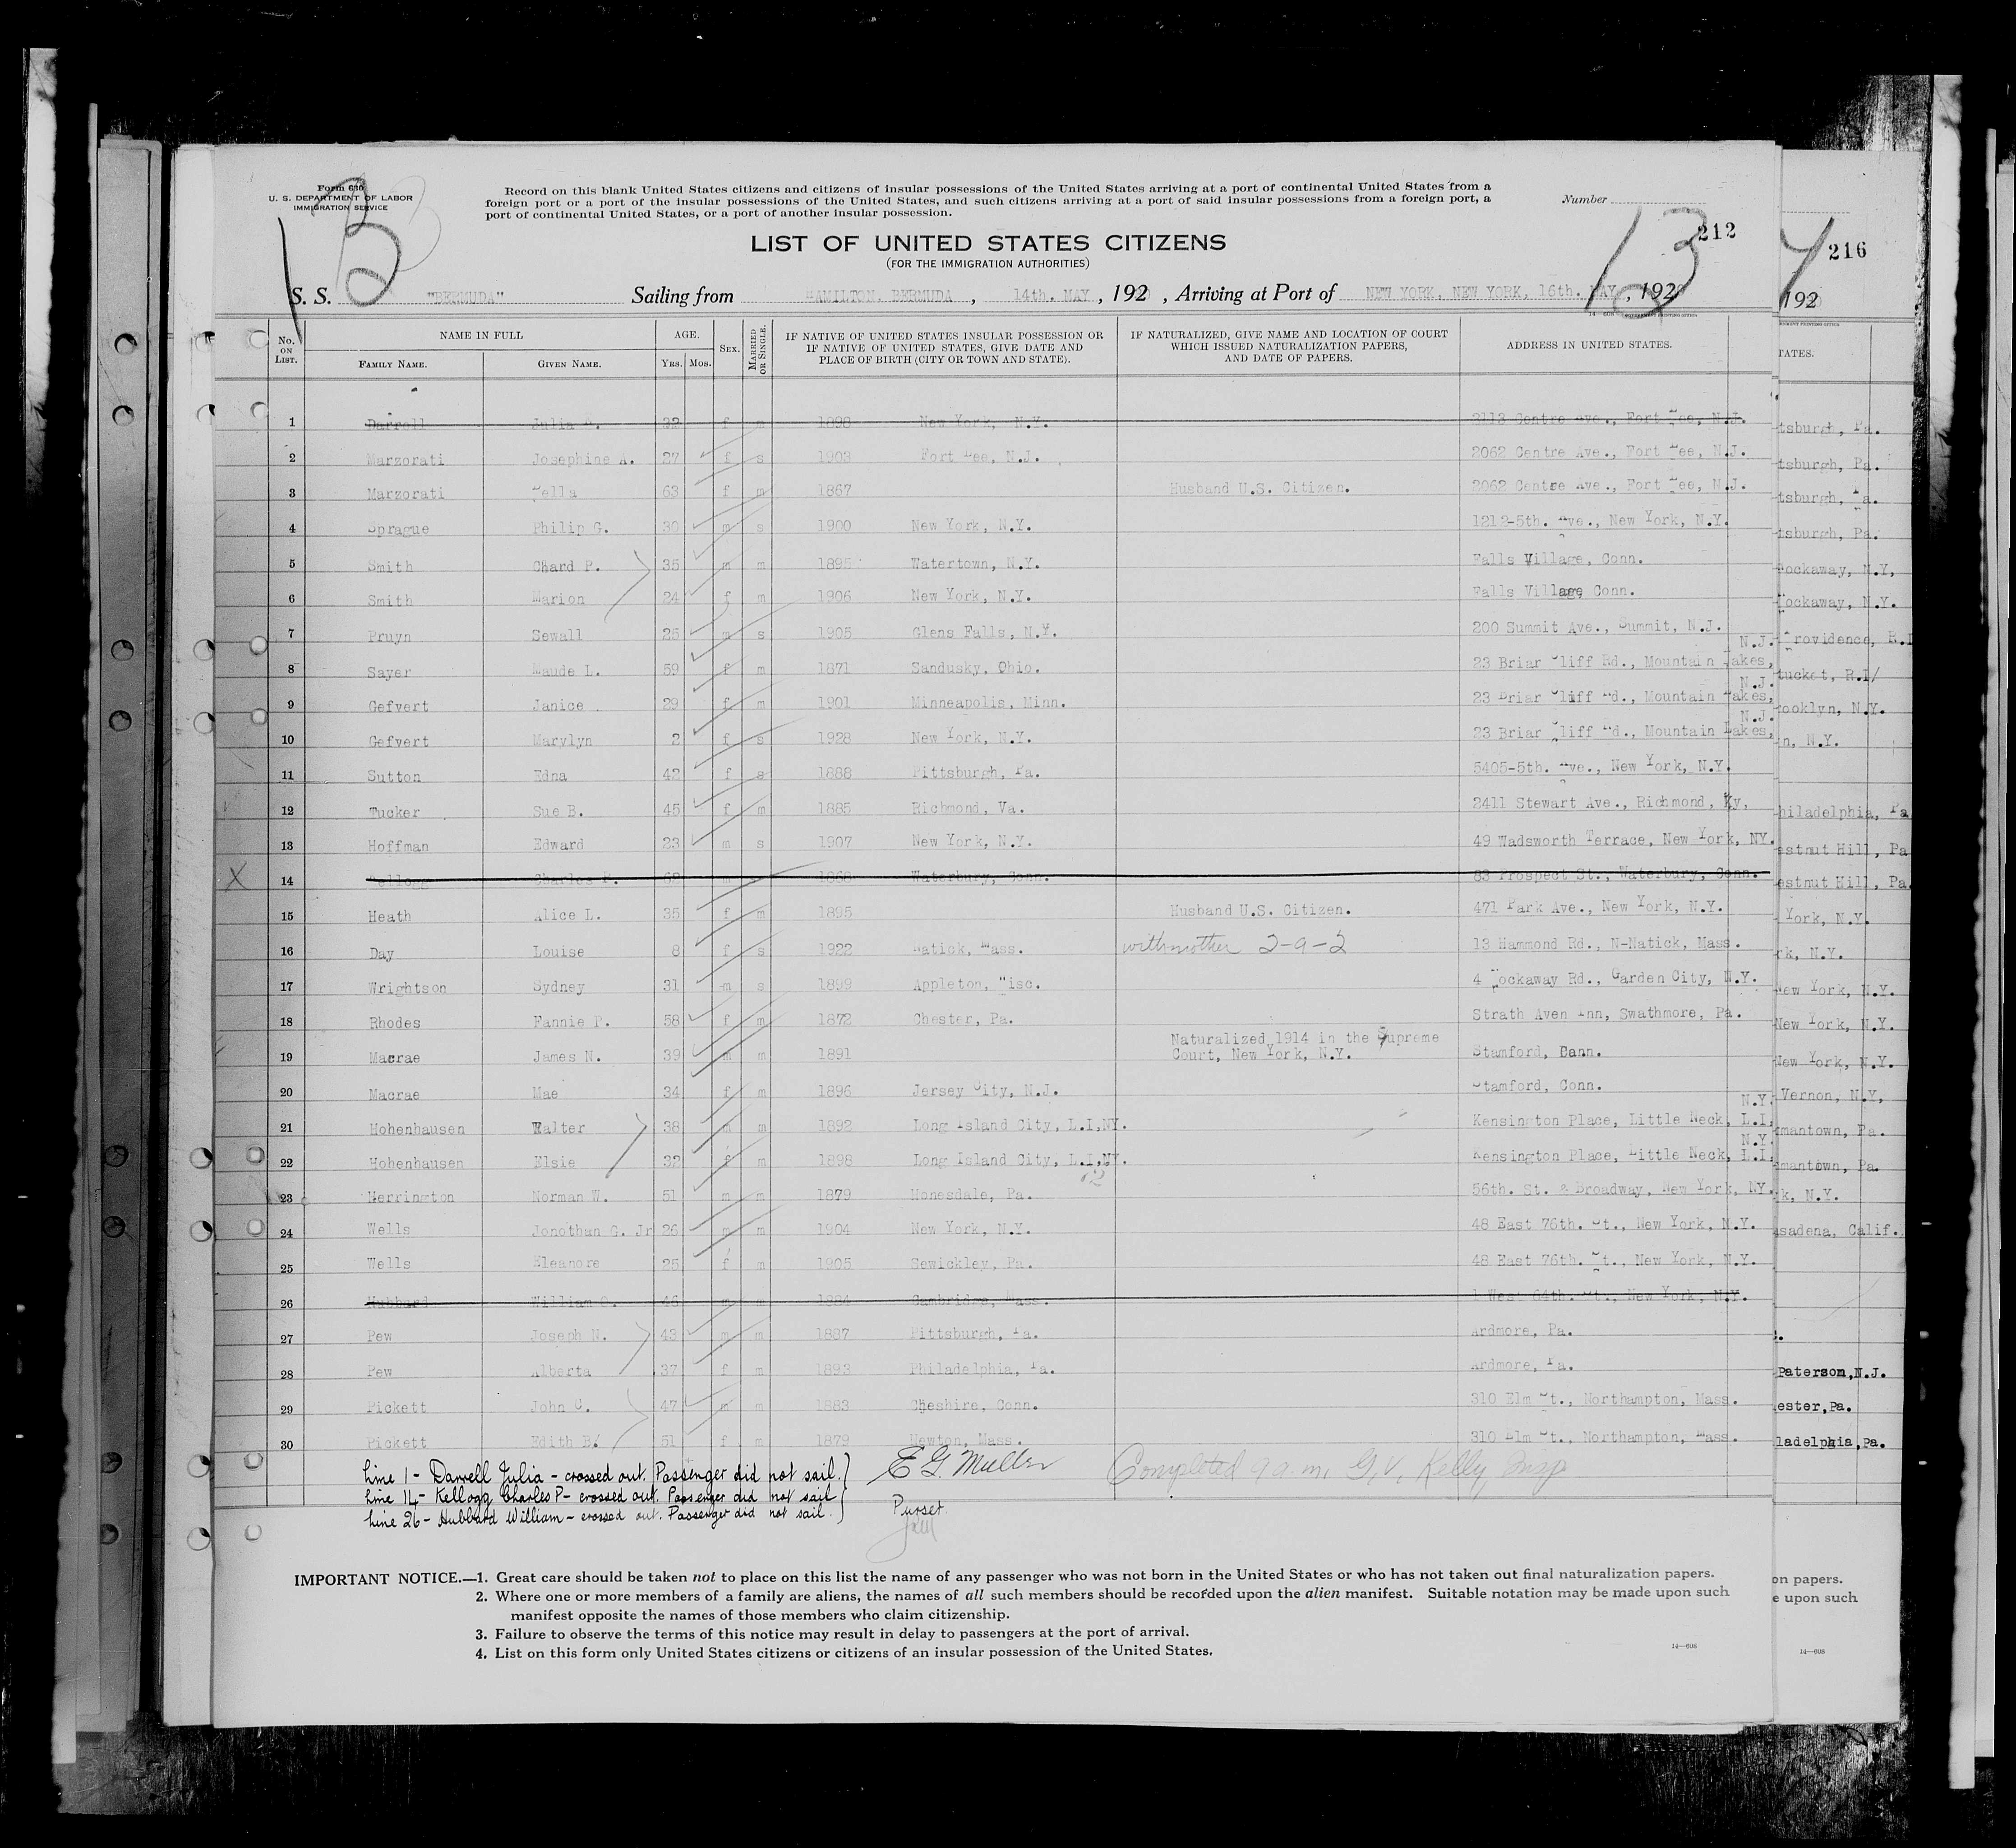 Form 630
U. S. DEPARTMENT OF LABOR
IMMIGRATION SERVICE
13
Record on this blank United States citizens and citizens of insular possessions of the United States arriving at a port of continental United States from a
foreign port or a port of the insular possessions of the United States, and such citizens arriving at a port of said insular possessions from a foreign port, a
port of continental United States, or a port of another insular possession.
Number
13
212
LIST OF UNITED STATES CITIZENS
(FOR THE IMMIGRATION AUTHORITIES)
S. S. "BERMUDA" Sailing from HAMILTON, BERMUDA, 14th. MAY, 192 , Arriving at Port of NEW YORK, NEW YORK, 16th. MAY, 192
No. ON LIST. NAME IN FULL FAMILY NAME. GIVEN NAME. AGE. YRS. MOS. SEX. MARRIED OR SINGLE. IF NATIVE OF UNITED STATES INSULAR POSSESSION OR IF NATIVE OF UNITED STATES, GIVE DATE AND PLACE OF BIRTH (CITY OR TOWN AND STATE). IF NATURALIZED, GIVE NAME AND LOCATION OF COURT WHICH ISSUED NATURALIZATION PAPERS, AND DATE OF PAPERS. ADDRESS IN UNITED STATES.
1 Darrell Julia 32 f m 1898 New York, N.Y. 2113 Centre Ave., Fort Lee, N.J.
2 Marzorati Josephine A. 27 f s 1903 Fort Lee, N.J. 2062 Centre Ave., Fort Lee, N.J.
3 Marzorati 63 f m 1867 Husband U.S. Citizen. 2062 Centre Ave., Fort Lee, N.J.
4 Sprague Philip G. 30 m s 1900 New York, N.Y. 1212-5th. Ave., New York, N.Y.
5 Smith Chard P. 35 m m 1895 Watertown, N.Y. Falls Village, Conn.
6 Smith Marion 24 f m 1906 New York, N.Y. Falls Village, Conn.
7 Pruyn Sewall 25 m s 1905 Glens Falls, N.Y. 200 Summit Ave., Summit, N.J.
8 Sayer Maude L. 59 f m 1871 Sandusky, Ohio. 23 Briar Cliff Rd., Mountain Lakes, N.J.
9 Gefvert Janice 29 f m 1901 Minneapolis, Minn. 23 Briar Cliff Rd., Mountain Lakes, N.J.
10 Gefvert Marylyn 2 f s 1928 New York, N.Y. 23 Briar Cliff Rd., Mountain Lakes, N.J.
11 Sutton Edna 42 f s 1888 Pittsburgh, Pa. 5405-5th. Ave., New York, N.Y.
12 Tucker Sue B. 45 f m 1885 Richmond, Va. 2411 Stewart Ave., Richmond, Ky.
13 Hoffman Edward 23 m s 1907 New York, N.Y. 49 Wadsworth Terrace, New York, NY.
X 14 Kellogg Charles P. 62 m 1868 Waterbury, Conn. 83 Prospect St., Waterbury, Conn.
15 Heath Alice L. 35 f m 1895 Husband U.S. Citizen. 471 Park Ave., New York, N.Y.
16 Day Louise 8 f s 1922 Natick, Mass. with mother 2-9-2 13 Hammond Rd., N-Natick, Mass.
17 Wrightson Sydney 31 m s 1899 Appleton, Wisc. 4 Rockaway Rd., Garden City, N.Y.
18 Rhodes Fannie P. 58 f m 1872 Chester, Pa. Strath Aven Inn, Swathmore, Pa.
19 Macrae James N. 39 m m 1891 Naturalized 1914 in the Supreme Court, New York, N.Y. Stamford, Conn.
20 Macrae Mae 34 f m 1896 Jersey City, N.J. Stamford, Conn.
21 Hohenhausen Walter 38 m m 1892 Long Island City, L.I,NY. Kensington Place, Little Neck, L.I, N.Y.
22 Hohenhausen Elsie 32 f m 1898 Long Island City, L.I,NY. Kensington Place, Little Neck, L.I, N.Y.
23 Herrington Norman W. 51 m m 1879 Honesdale, Pa. 56th. St. & Broadway, New York, NY.
24 Wells Jonothan G. Jr 26 m m 1904 New York, N.Y. 48 East 76th. St., New York, N.Y.
25 Wells Eleanore 25 f m 1905 Sewickley, Pa. 48 East 76th. St., New York, N.Y.
26 Hubbard William 46 m m 1884 Cambridge, Mass. 1 West 64th. St., New York, N.Y.
27 Pew Joseph N. 43 m m 1887 Pittsburgh, Pa. Ardmore, Pa.
28 Pew Alberta 37 f m 1893 Philadelphia, Pa. Ardmore, Pa.
29 Pickett John C. 47 m m 1883 Cheshire, Conn. 310 Elm St., Northampton, Mass.
30 Pickett Edith B. 51 f m 1879 Newton, Mass. 310 Elm St., Northampton, Mass.
Line 1 - Darrell Julia - crossed out. Passenger did not sail.
Line 14 - Kellogg Charles P - crossed out. Passenger did not sail
Line 26 - Hubbard William - crossed out. Passenger did not sail.
E G. Muller
Purser
Completed 9 a.m. G. V. Kelly, Insp
IMPORTANT NOTICE.—1. Great care should be taken not to place on this list the name of any passenger who was not born in the United States or who has not taken out final naturalization papers.
2. Where one or more members of a family are aliens, the names of all such members should be recorded upon the alien manifest. Suitable notation may be made upon such
manifest opposite the names of those members who claim citizenship.
3. Failure to observe the terms of this notice may result in delay to passengers at the port of arrival.
4. List on this form only United States citizens or citizens of an insular possession of the United States.
14—608
4
216
192
TATES.
tsburgh, Pa.
tsburgh, Pa.
tsburgh, Pa.
tsburgh, Pa.
ockaway, N.Y,
ockaway, N.Y.
Providence, R.I
tucket, R.I/
rooklyn, N.Y.
n, N.Y.
hiladelphia, Pa
estnut Hill, Pa
estnut Hill, Pa.
York, N.Y.
rk, N.Y.
New York, N.Y.
New York, N.Y.
New York, N.Y.
Vernon, N.Y,
mantown, Pa.
mantown, Pa.
k, N.Y.
sadena, Calif.
Paterson,N.J.
ester,Pa.
ladelphia,Pa.
on papers.
e upon such
14—608